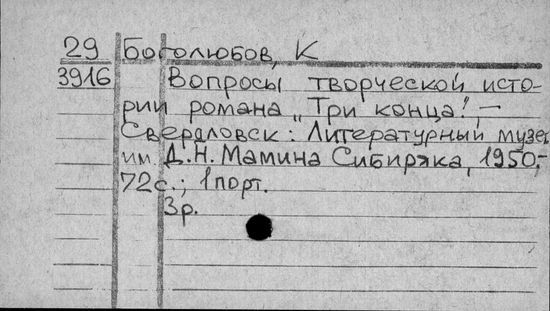 29 Боголюбов, К
3916 Вопросы творческой исто-
рии романа „Три конца". —
Свердловск: Литературный музей
им. Д.Н. Мамина Сибиряка, 1950,-
72с.; 1 порт.
3р.